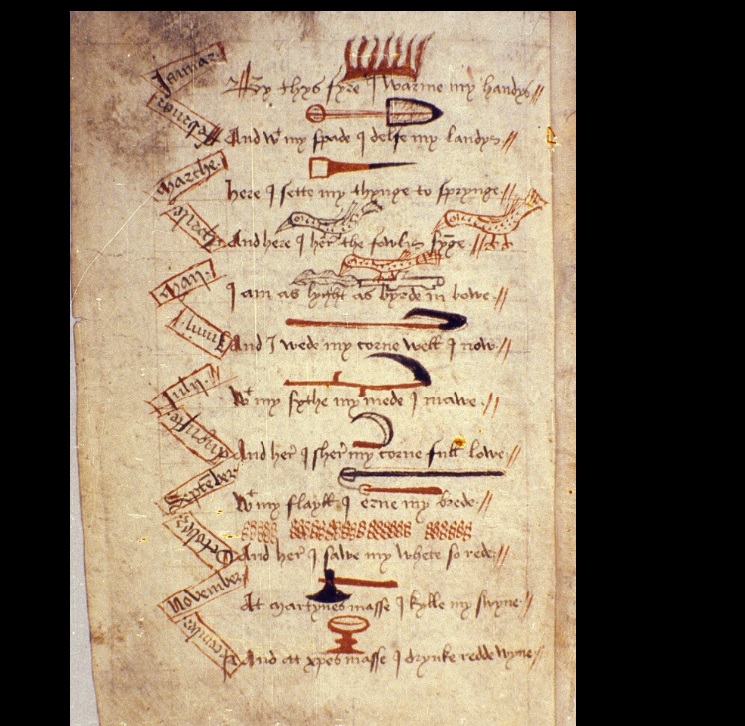 Januar.
By thys fyre I warme my handys //
februar
And wt my spade I delfe my landys //
Marche.
here I sette my thynge to sprynge //
Aprile
And here I her the fowlis synge //
May.
I am as lyght as byrde in bowe //
Junii
And I wede my corne well I now //
July.
Wt my sythe my mede I mawe //
Auguste
And her I sher my corne full lowe //
September
Wt my flayll I erne my brede //
October
And her I sawe my whete so rede //
November
At martynes masse I kylle my swyne //
December
And at xpes masse I drynke redde wyne //